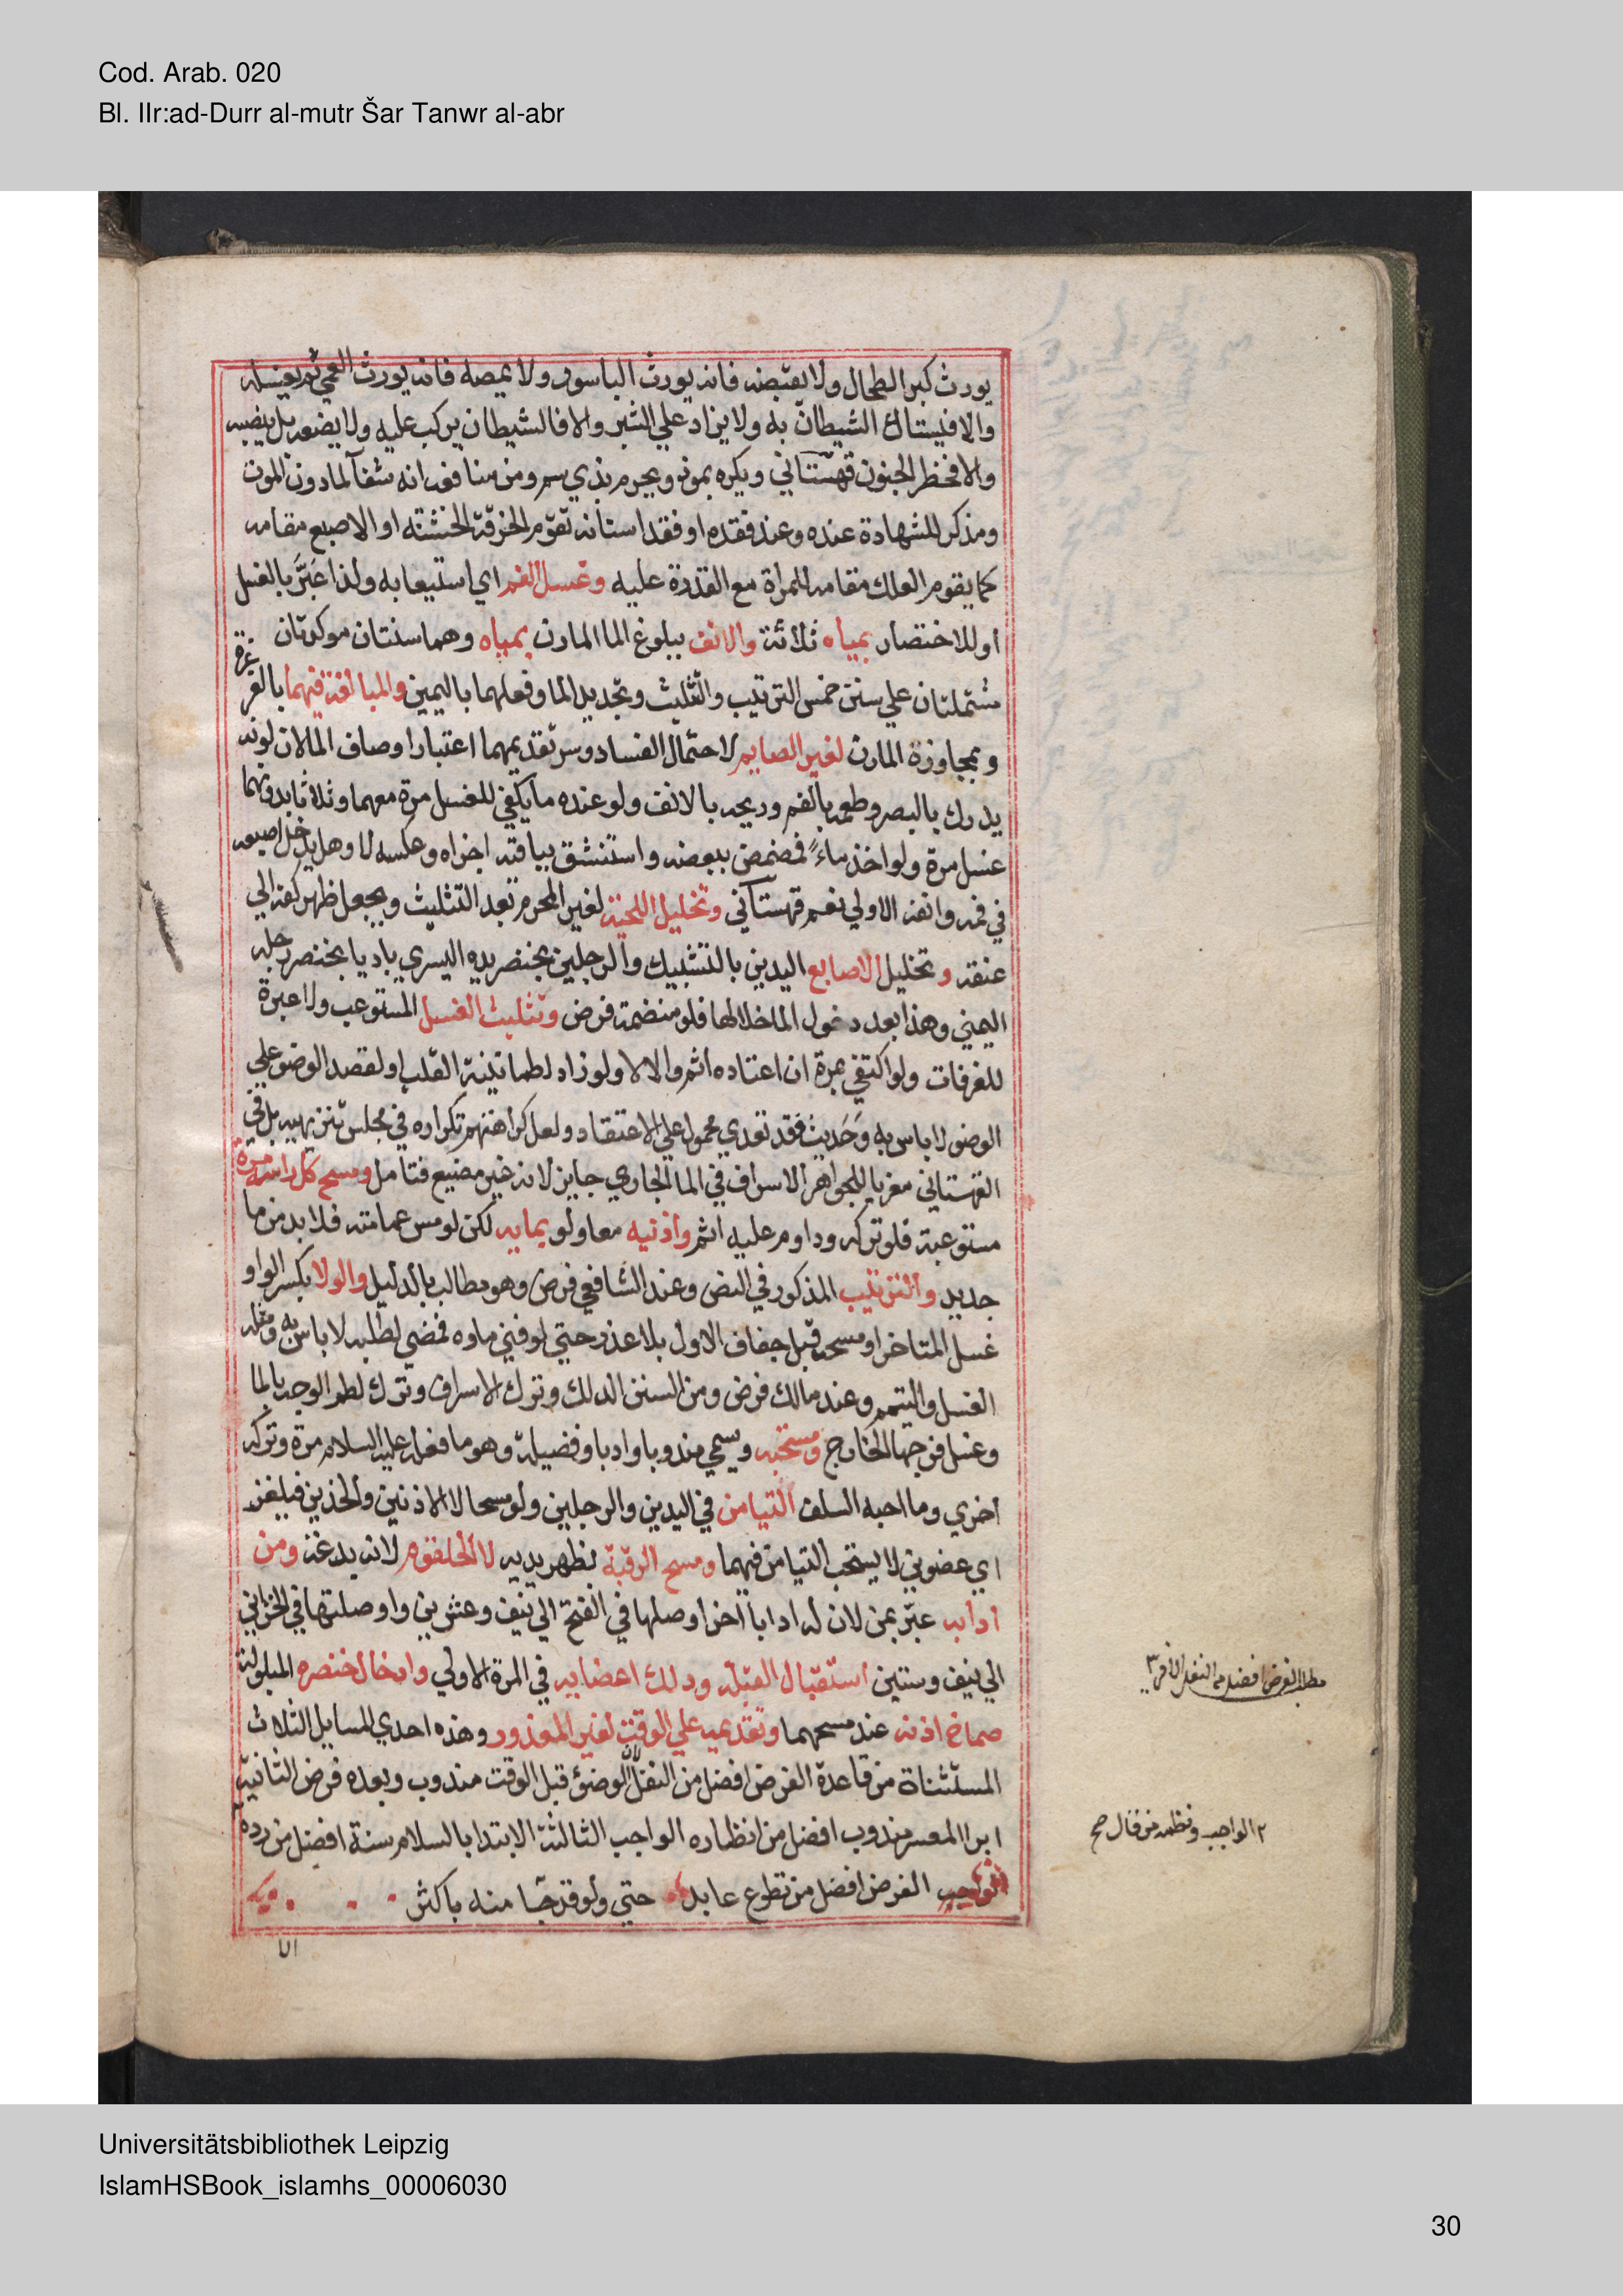 Cod. Arab. 020
Bl. IIr:ad-Durr al-mutr Šar Tanwr al-abr
يورث كبر الطحال ولا يقبضه فانه يورث الباسور ولا يمصه فانه يورث العمي ثم يغسله
والا فيستاك الشيطان به ولا يزاد علي الشبر والا فالشيطان يركب عليه ولا يضعه بل ينصبه
والا فخطر الجنون قهستاني ويكره بموذ ويحرم بذي سم ومن منافعه انه شفآ لمادون الموت
ومذكر للشهادة عنده وعند فقده او فقد اسنانه تقوم الخرقة الخشنة او الاصبع مقامه
كما يقوم العلك مقامه للمراة مع القدرة عليه وغسل الفم اي استيعابه ولذا عَبَّرَ بالغسل
او للاختصار بمياه ثلاثة والانف ببلوغ الما المارن بمياه وهما سنتان موكدتان
مشتملتان علي سنن خمس الترتيب والتثليث وتجديد الما وفعلهما باليمين والمبالغة فيهما بالغرغرة
وبمجاوزة المارن لغير الصايم لاحتمال الفساد وسر تقديمهما اعتبار اوصاف الما لان لونه
يدرك بالبصر وطعمه بالفم وريحه بالانف ولو عنده ما يكفي للغسل مرة معهما وثلاثا بدونهما
غسل مرة ولو اخذ ماءً فمضمض ببعضه واستنشق بباقيه اجزاه وعكسه لا وهل يدخل اصبعه
في فمه وانفه الاولي نعم قهستاني وتخليل اللحية لغير المحرم بعد التثليث ويجعل ظهر كفه الي
عنقه وتخليل الاصابع اليدين بالتشبيك والرجلين بخنصر يده اليسري باديا بخنصر رجله
اليمني وهذا بعد دخول الما خلالها فلو منضمة فرض وتثليث الغسل المستوعب ولا عبرة
للغرفات ولو اكتفي بمرة ان اعتاده اثم والا لا ولو زاد لطمانينة القلب او لقصد الوضو علي
الوضو لا باس به وحَديث فقد تعدي محمول علي الاعتقاد ولعل كراهتهم تكراره في مجلس تنزيهيه بل في
القهستاني معزيا للجواهر الاسراف في الما الجاري جايز لانه غير مضيع فتامل ومسح كل راسه مرة
مستوعبة فلو تركه وداوم عليه اثم واذنيه معا ولو بمايه لكن لو مس عمامته فلا بد من ما
جديد والترتيب المذكور في النص وعند الشافعي فرض وهو مطالب بالدليل والولا بكسر الواو
غسل المتاخر او مسحه قبل جفاف الاول بلا عذر حتي لو فني ماوه فمضي لطلبه لا باس به ومثله
الغسل والتيمم وعند مالك فرض ومن السنن الدلك وترك الاسراف وترك لطم الوجه بالما
وغسل فرجها الخارج ومستحبه ويسمي مندوبا وادبا وفضيلة وهو ما فعله عليه السلام مرة وتركه
اخري وما احبه السلف التيامن في اليدين والرجلين ولو مسحا لا الاذنين والخدين فيلغز
اي عضوين لا يستحب التيامن فيهما ومسح الرقبة بظهر يديه لا الحلقوم لانه بدعة ومن
ادابه عبّر بمن لان له ادابا اخر اوصلها في الفتح الي نيف وعشرين واوصلتها في الخزاين
الي نيف وستين استقبال القبلة ودلك اعضايه في المرة الاولي وادخال خنصره المبلولة
صماخ اذنه عند مسحهما وتقديمه علي الوقت لغير المعذور وهذه احدي المسايل الثلاث
المستثناة من قاعدة الفرض افضل من النفل لان الوضؤ قبل الوقت مندوب وبعده فرض الثانية
ابرا المعسر مندوب افضل من انظاره الواجب الثالثة الابتدا بالسلام سنة افضل من رده
الفرض افضل من تطوع عابد حتي ولو قد جآ منه باكثر
مطلب الفرض افضل من النفل الا في ٣
٢ الواجب ونظمه من قال صح
الا
Universitätsbibliothek Leipzig
IslamHSBook_islamhs_00006030
30